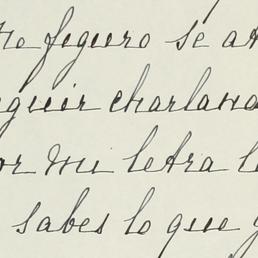 no figuro se an
eguir charland
or mi letra l
sabes lo que